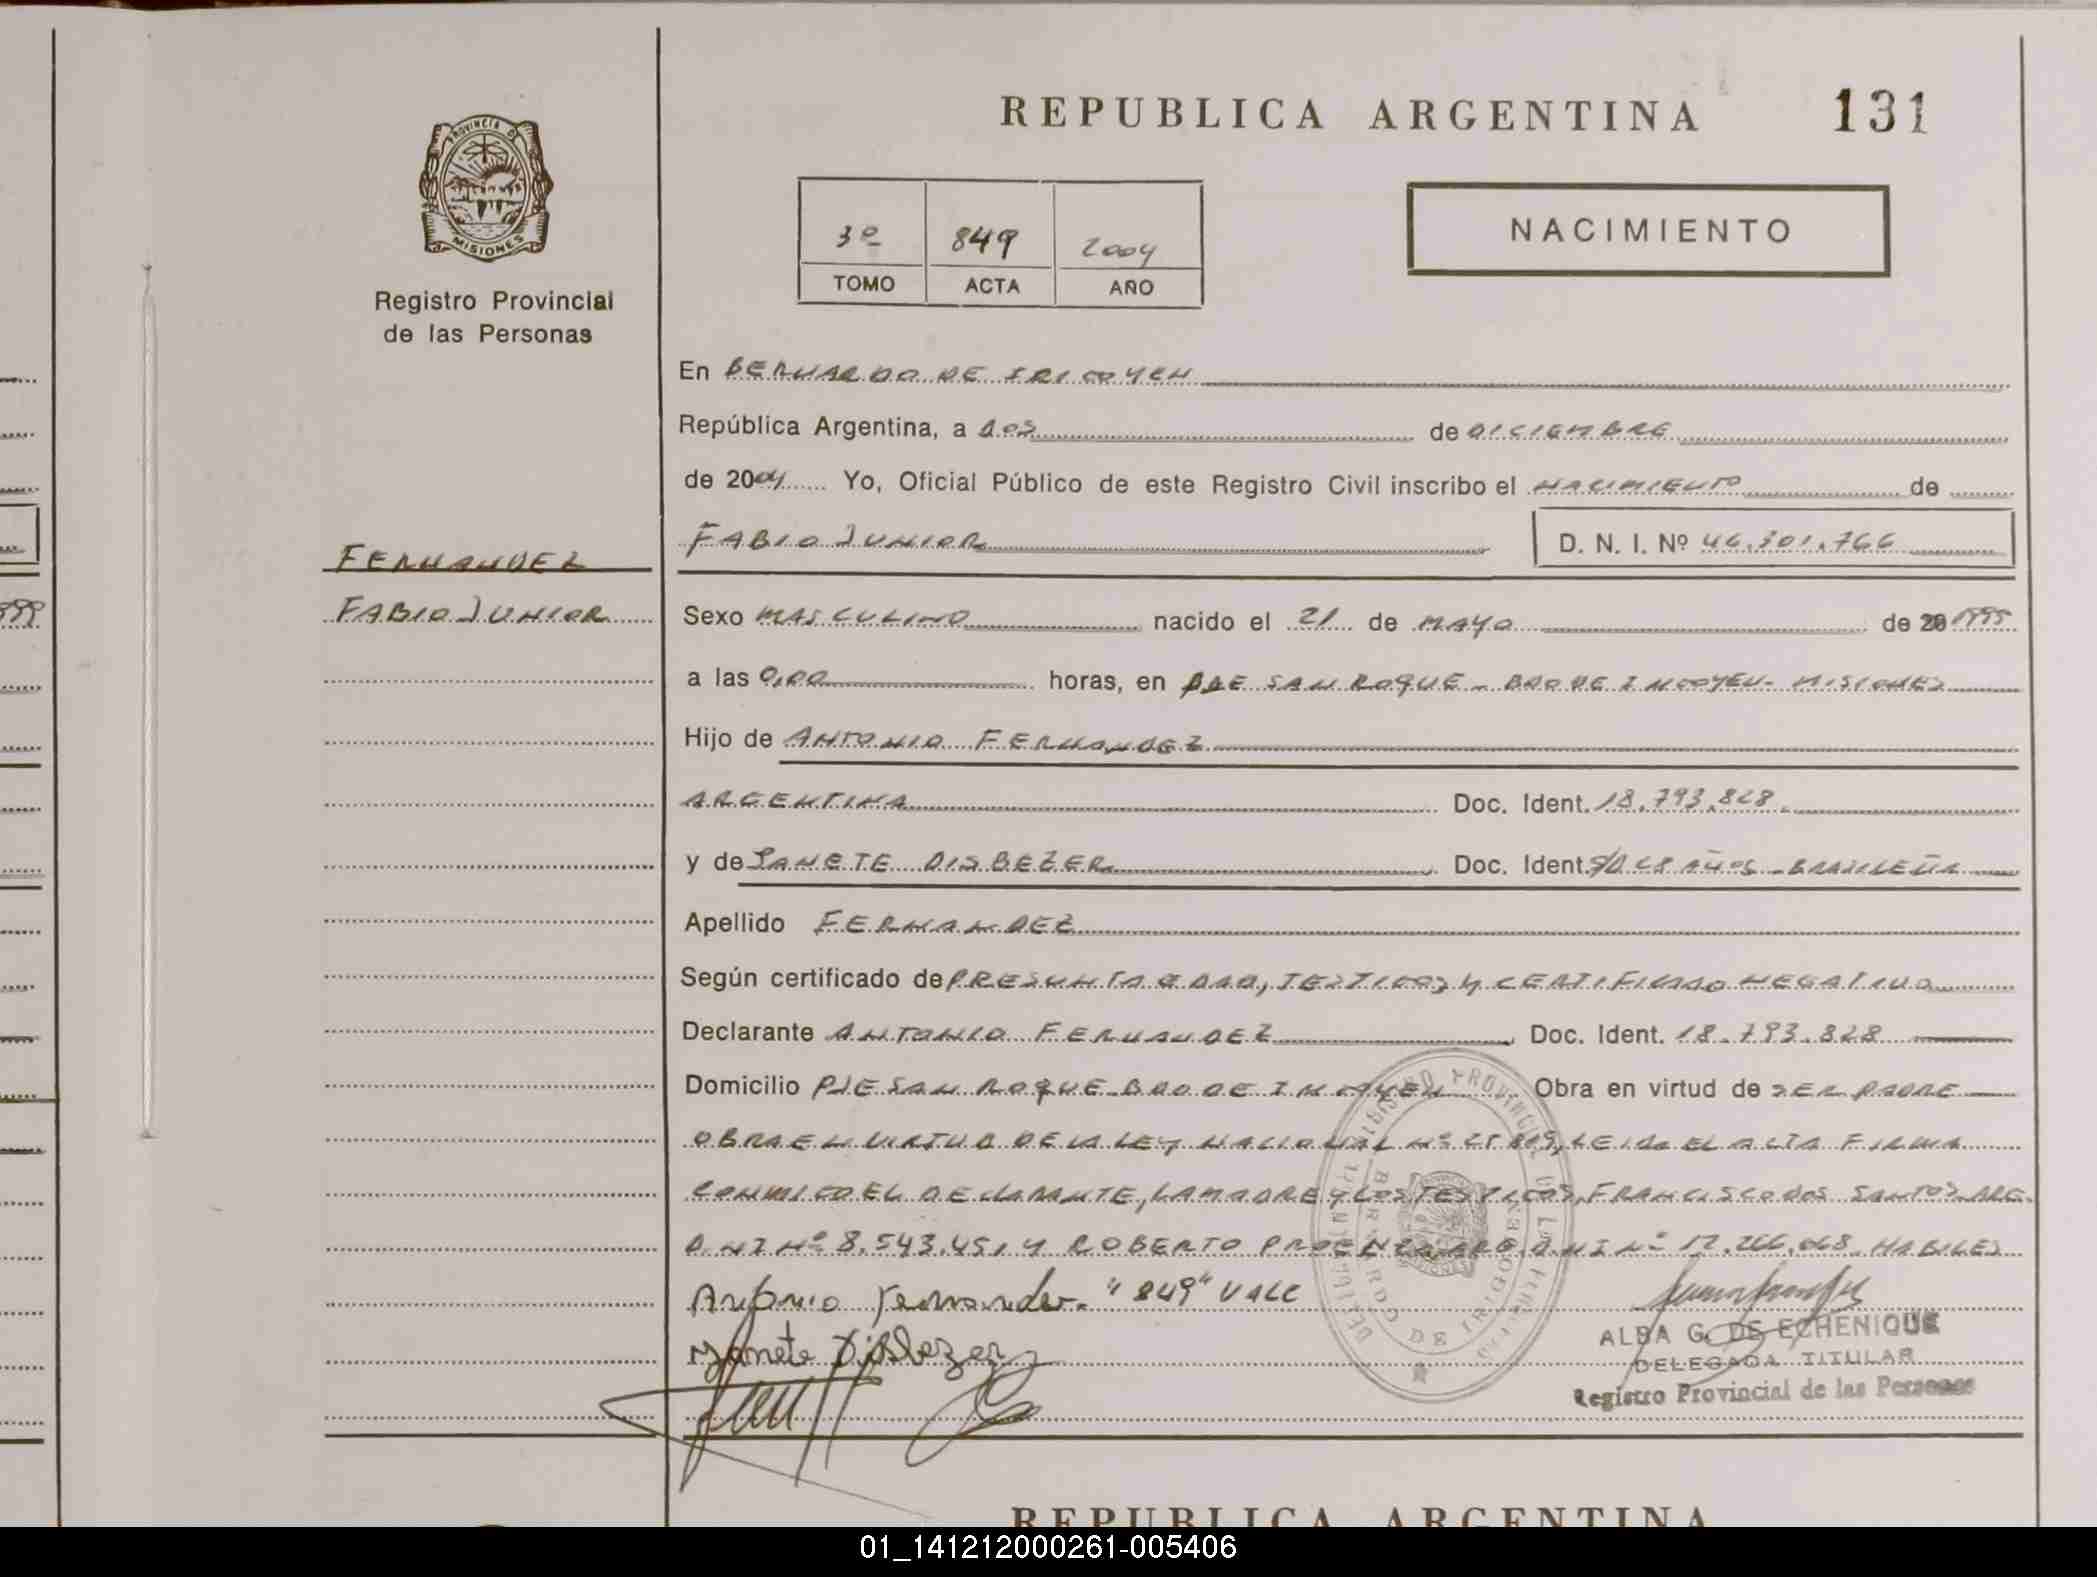 PROVINCIA DE
MISIONES
Registro Provincial
de las Personas
REPUBLICA ARGENTINA 131
3º 849 2004
TOMO ACTA AÑO
NACIMIENTO
En BERNARDO DE IRIGOYEN
República Argentina, a DOS de DICIEMBRE
de 2004 Yo, Oficial Público de este Registro Civil inscribo el NACIMIENTO de
FABIO JUNIOR D. N. I. Nº 46.301.766
FERNANDEZ
FABIO JUNIOR
Sexo MASCULINO nacido el 21 de MAYO de 20 1995
a las 0,00 horas, en PJE SAN ROQUE - BDO DE IRIGOYEN - MISIONES
Hijo de ANTONIO FERNANDEZ
ARGENTINA Doc. Ident. 18.793.828
y de JANETE DISBEZER Doc. Ident. S/D 28 AÑOS - BRASILEÑA
Apellido FERNANDEZ
Según certificado de PRESUNTA EDAD, TESTIGOS Y CERTIFICADO NEGATIVO
Declarante ANTONIO FERNANDEZ Doc. Ident. 18.793.828
Domicilio PJE SAN ROQUE BDO DE IRIGOYEN Obra en virtud de SER PADRE
OBRA EN VIRTUD DE LA LEY NACIONAL Nº 25.819, LEIDA EL ACTA FIRMA
CONMIGO EL DECLARANTE, LA MADRE Y LOS TESTIGOS, FRANCISCO DOS SANTOS ARG.
D.N.I Nº 8.543.451 Y ROBERTO PROENZA ARG. D.N.I Nº 17.266.068 HABILES
Antonio Fernandez. "849" VALE
Janete Disbezer
ALBA G. DE ECHENIQUE
DELEGADA TITULAR
Registro Provincial de las Personas
REGISTRO PROVINCIAL DE LAS PERSONAS
BERNARDO DE IRIGOYEN
REPUBLICA ARGENTINA
01_141212000261-005406